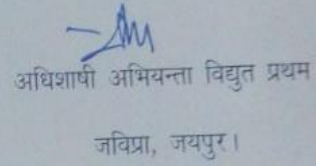 अधिशाषी अभियन्ता विद्युत प्रथम
जविप्रा, जयपुर।